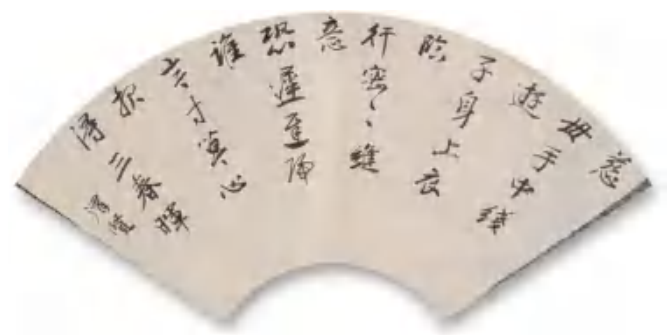 慈
母手中綫
遊
子身上衣
臨
行密々縫
意
恐遲遲歸
誰
言寸草心
報
得三春暉